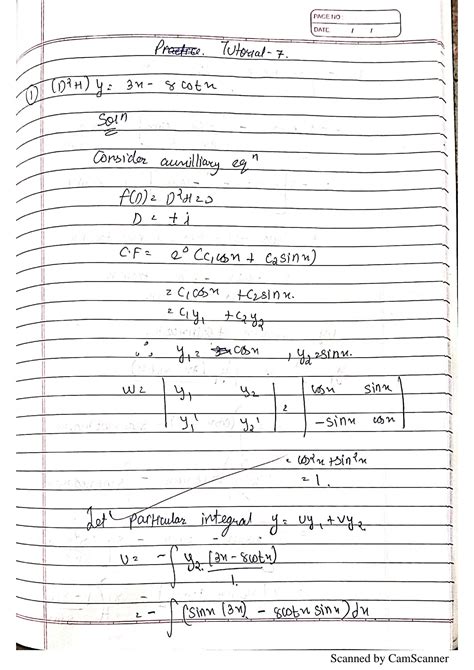 PAGE NO:
DATE / /
Practice. Tutorial-7.
① (D²+1) y = 3x - 8cotx
Solⁿ
Consider auxilliary eqⁿ
f(D) = D²+1 = 0
D = ± i
C.F = e⁰ (c₁cosx + c₂sinx)
= c₁cosx + c₂sinx.
= c₁y₁ + c₂y₂
∴ y₁ = cosx , y₂ = sinx.
W = | y₁ y₂ | = | cosx sinx |
| y₁' y₂' | | -sinx cosx |
= cos²x + sin²x
= 1.
Let particular integral y = uy₁ + vy₂
u = -∫ y₂ (3x - 8cotx)
1.
= -∫ (sinx (3x) - 8cotx sinx) dx
Scanned by CamScanner